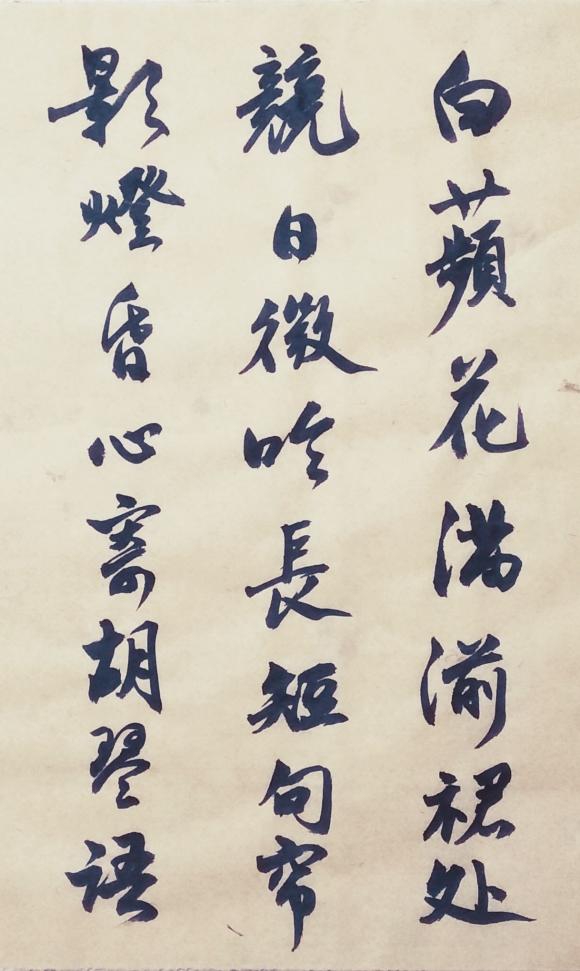 白蘋花満湔裙处
競日微吟長短句帘
影燈昏心寄胡琴語